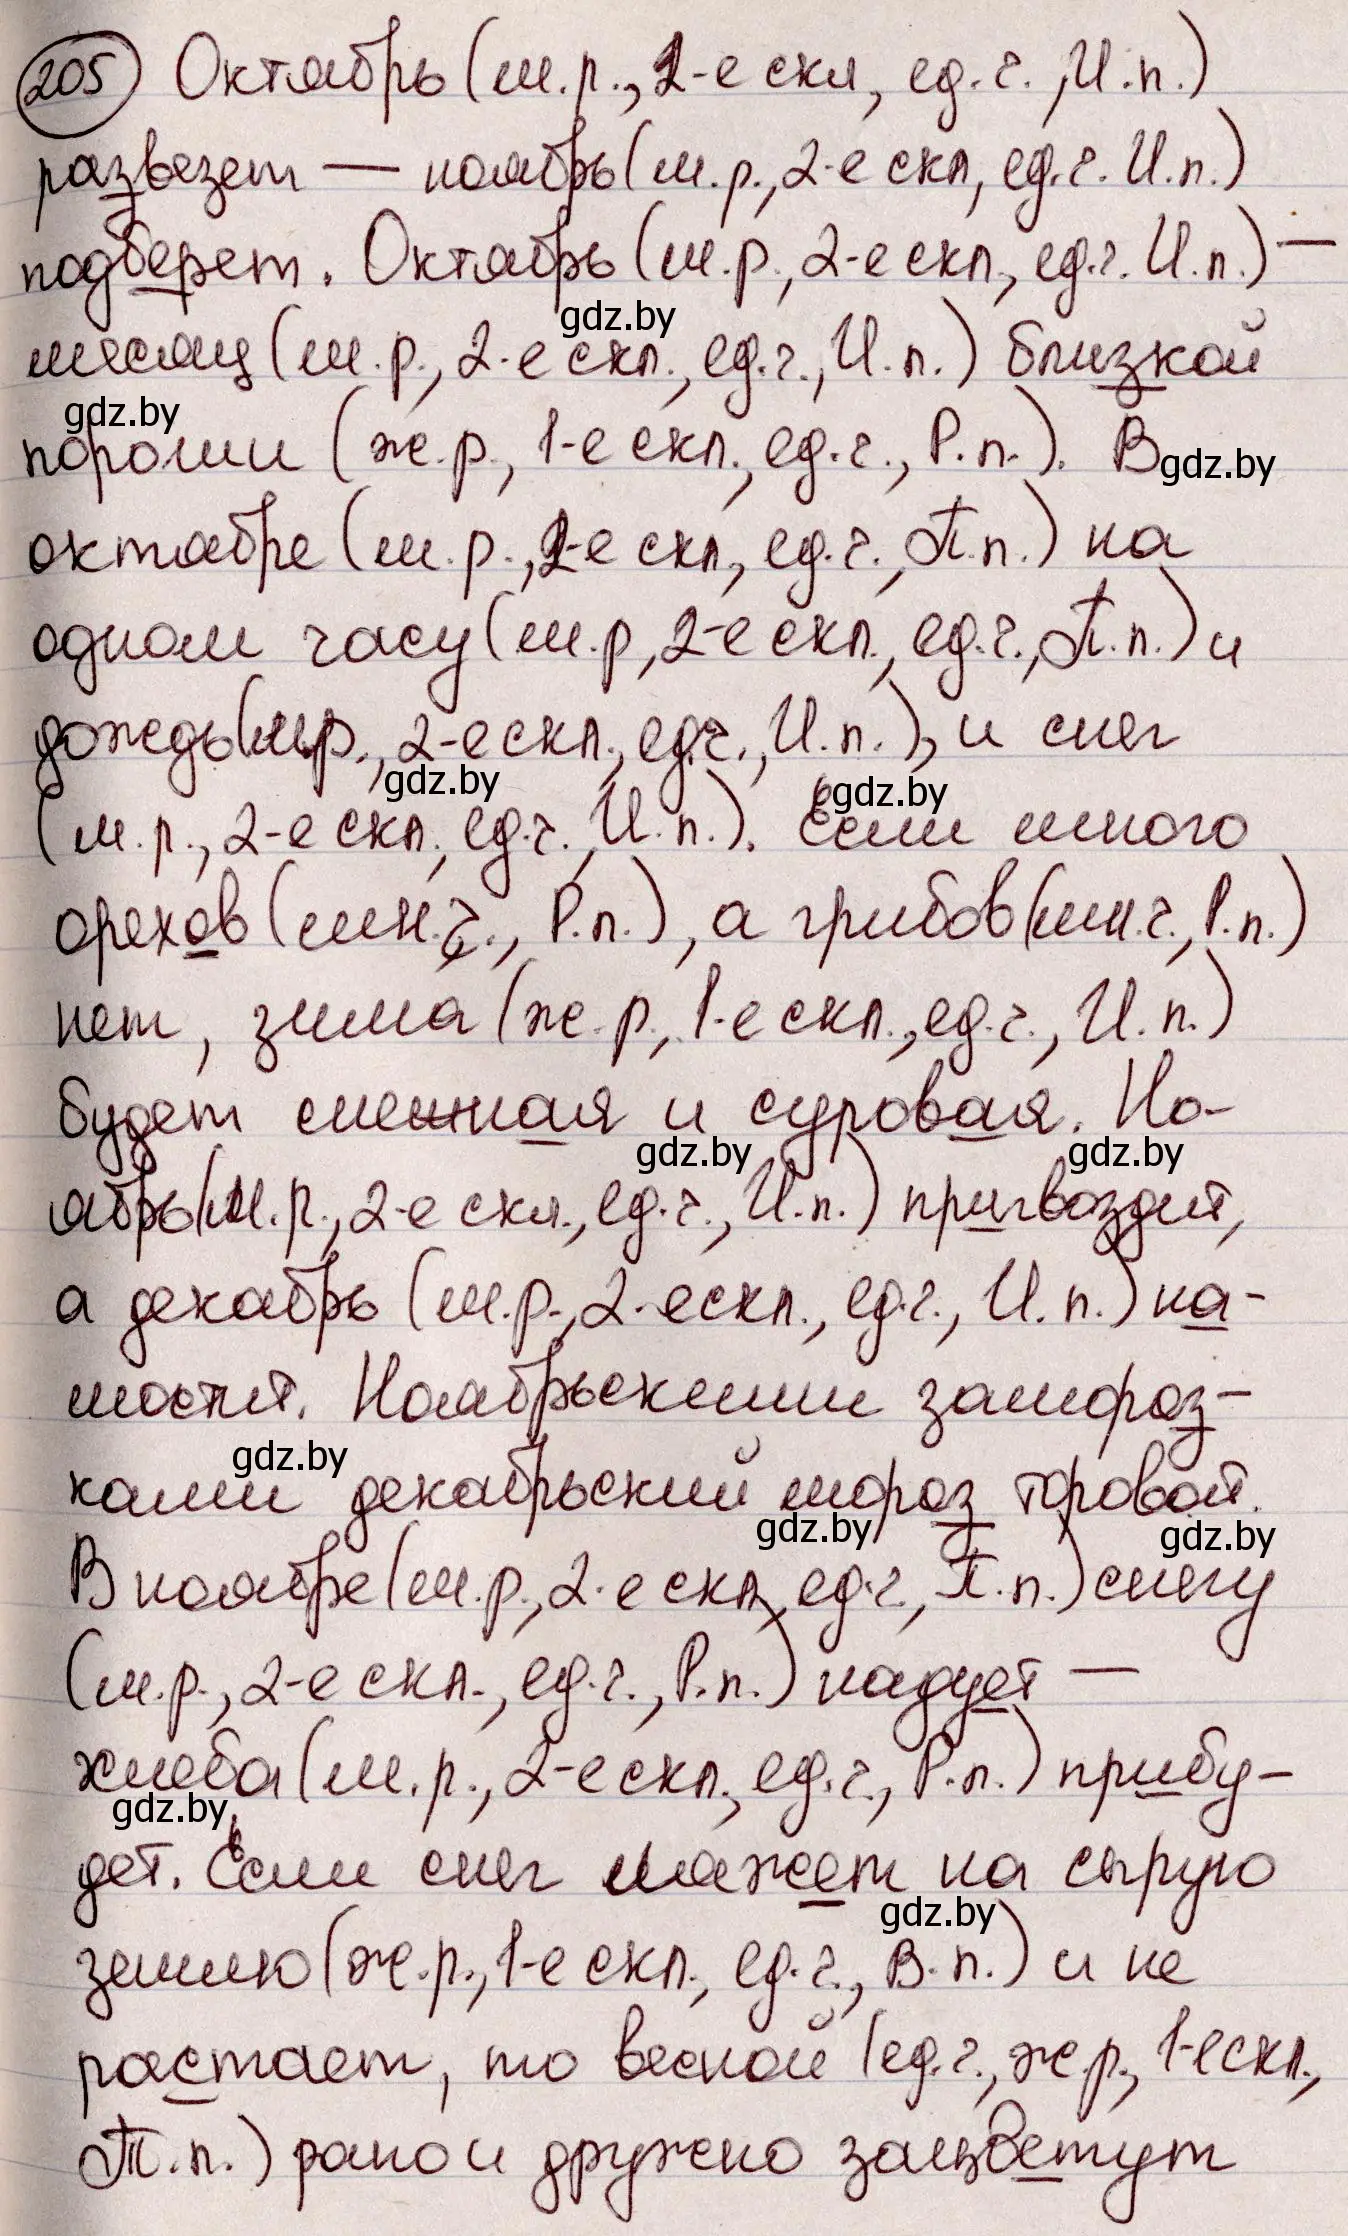 205 Октябрь (м.р., 2-е скл, ед.ч., И.п.)
развезет — ноябрь (м.р., 2-е скл, ед.ч. И.п.)
подберет. Октябрь (м.р., 2-е скл., ед.ч. И.п.) —
gdz.by
месяц (м.р., 2-е скл., ед.ч., И.п.) близкой
gdz.by
пороши (ж.р., 1-е скл., ед.ч., Р.п.). В
gdz.by
октябре (м.р., 2-е скл., ед.ч., П.п.) на
одном часу (м.р, 2-е скл., ед.ч., П.п.) и
дождь (м.р., 2-е скл., ед.ч., И.п.), и снег
gdz.by
gdz.by
(м.р., 2-е скл., ед.ч., И.п.). Если много
орехов (мн.ч., Р.п.), а грибов (мн.ч., Р.п.)
нет, зима (ж.р., 1-е скл., ед.ч., И.п.)
будет снежная и суровая. Но-
gdz.by
gdz.by
ябрь (м.р., 2-е скл., ед.ч., И.п.) пригвоздит,
а декабрь (м.р., 2-е скл., ед.ч., И.п.) на-
мостит. Ноябрьскими замороз-
gdz.by
ками декабрьский мороз тороват.
gdz.by
gdz.by
В ноябре (м.р., 2-е скл, ед.ч., П.п.) снегу
(м.р., 2-е скл., ед.ч., Р.п.) надует —
хлеба (м.р., 2-е скл., ед.ч., Р.п.) прибу-
gdz.by
дет. Если снег ляжет на сырую
gdz.by
землю (ж.р., 1-е скл., ед.ч., В.п.) и не
растает, то весной (ед.ч., ж.р., 1-е скл.,
Т.п.) рано и дружно зацветут